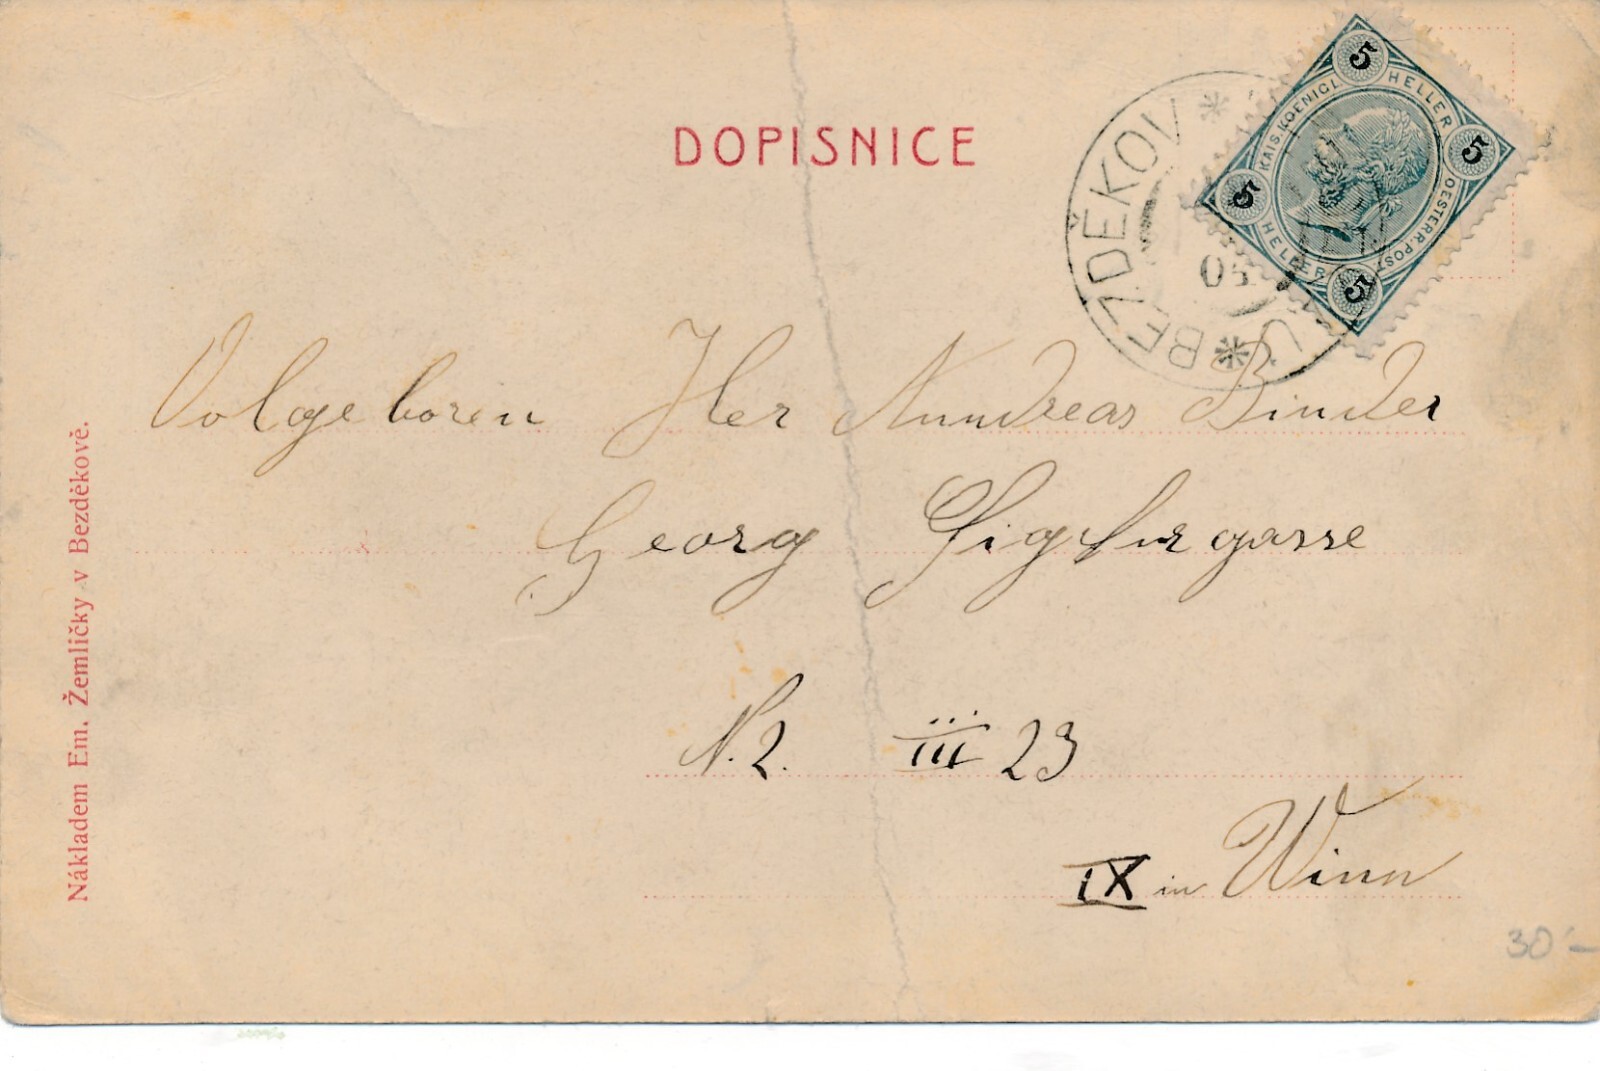 DOPISNICE
BEZDĚKOV U
05
5 HELLER 5
KAIS. KOENIGL. OESTERR. POST
5 HELLER 5
Volgeboren Her Anndreas Binder
Georg Siglurgasse
N. 2. III 23
IX in Winn
Nákladem Em. Žemličky v Bezděkově.
30'-